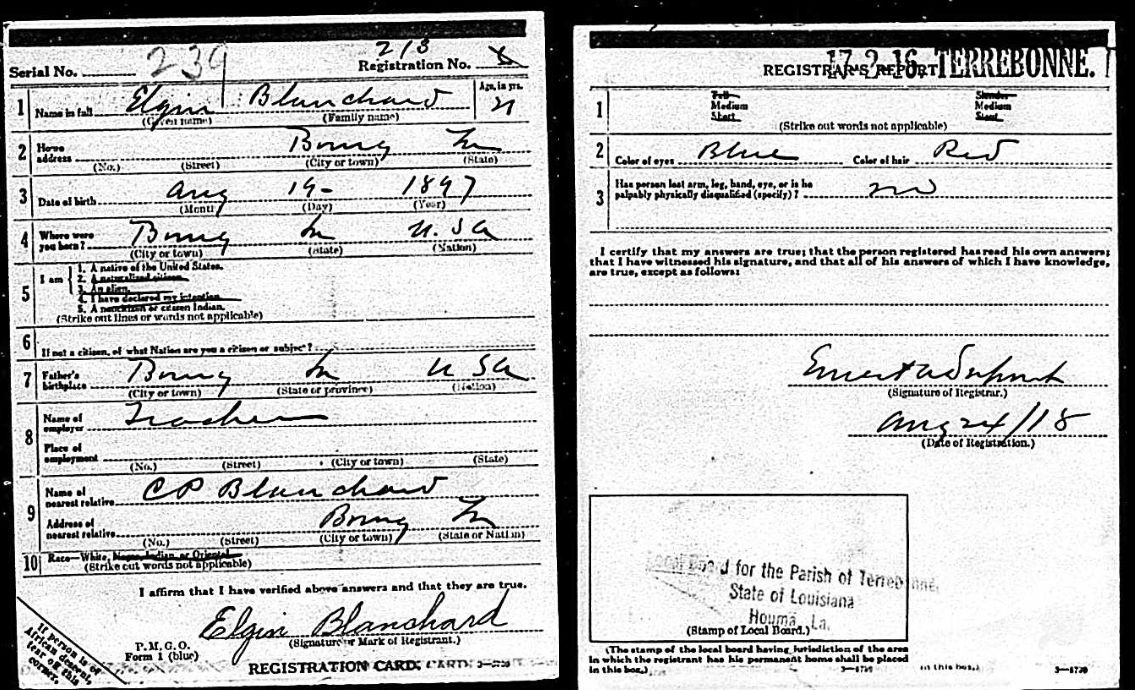 Serial No. 239
218
Registration No.
1 Name in full Elgin Blanchard Age, in yrs. 21
(Given name) (Family name)
2 Home address Bourg La
(No.) (Street) (City or town) (State)
3 Date of birth Aug 19- 1897
(Month) (Day) (Year)
4 Where were you born? Bourg La U.SA
(City or town) (State) (Nation)
5 I am
1. A native of the United States.
2. A naturalized citizen.
3. An alien.
4. I have declared my intention.
5. A noncitizen or citizen Indian.
(Strike out lines or words not applicable)
6 If not a citizen, of what Nation are you a citizen or subject?
7 Father's birthplace Bourg La U SA
(City or town) (State or province) (Nation)
8 Name of employer Teacher
Place of employment
(No.) (Street) (City or town) (State)
9 Name of nearest relative C P Blanchard
Address of nearest relative Bourg La
(No.) (Street) (City or town) (State or Nation)
10 Race—White, Negro, Indian, or Oriental
(Strike out words not applicable)
I affirm that I have verified above answers and that they are true.
Elgin Blanchard
P. M. G. O.
Form 1 (blue)
(Signature or Mark of Registrant.)
REGISTRATION CARD.
If person is of
African descent,
tear off this
corner.
17 2 16 TERREBONNE.
REGISTRAR'S REPORT
1 Tall Slender
Medium Medium
Short Stout
(Strike out words not applicable)
2 Color of eyes Blue Color of hair Red
3 Has person lost arm, leg, hand, eye, or is he
palpably physically disqualified (specify)? no
I certify that my answers are true; that the person registered has read his own answers;
that I have witnessed his signature, and that all of his answers of which I have knowledge,
are true, except as follows:
Ernest A Dupont
(Signature of Registrar.)
Aug 24/18
(Date of Registration.)
Local Board for the Parish of Terrebonne,
State of Louisiana
Houma, La.
(Stamp of Local Board.)
(The stamp of the local board having jurisdiction of the area
in which the registrant has his permanent home shall be placed
in this box.) 3—1739 in this box.) 3—1739